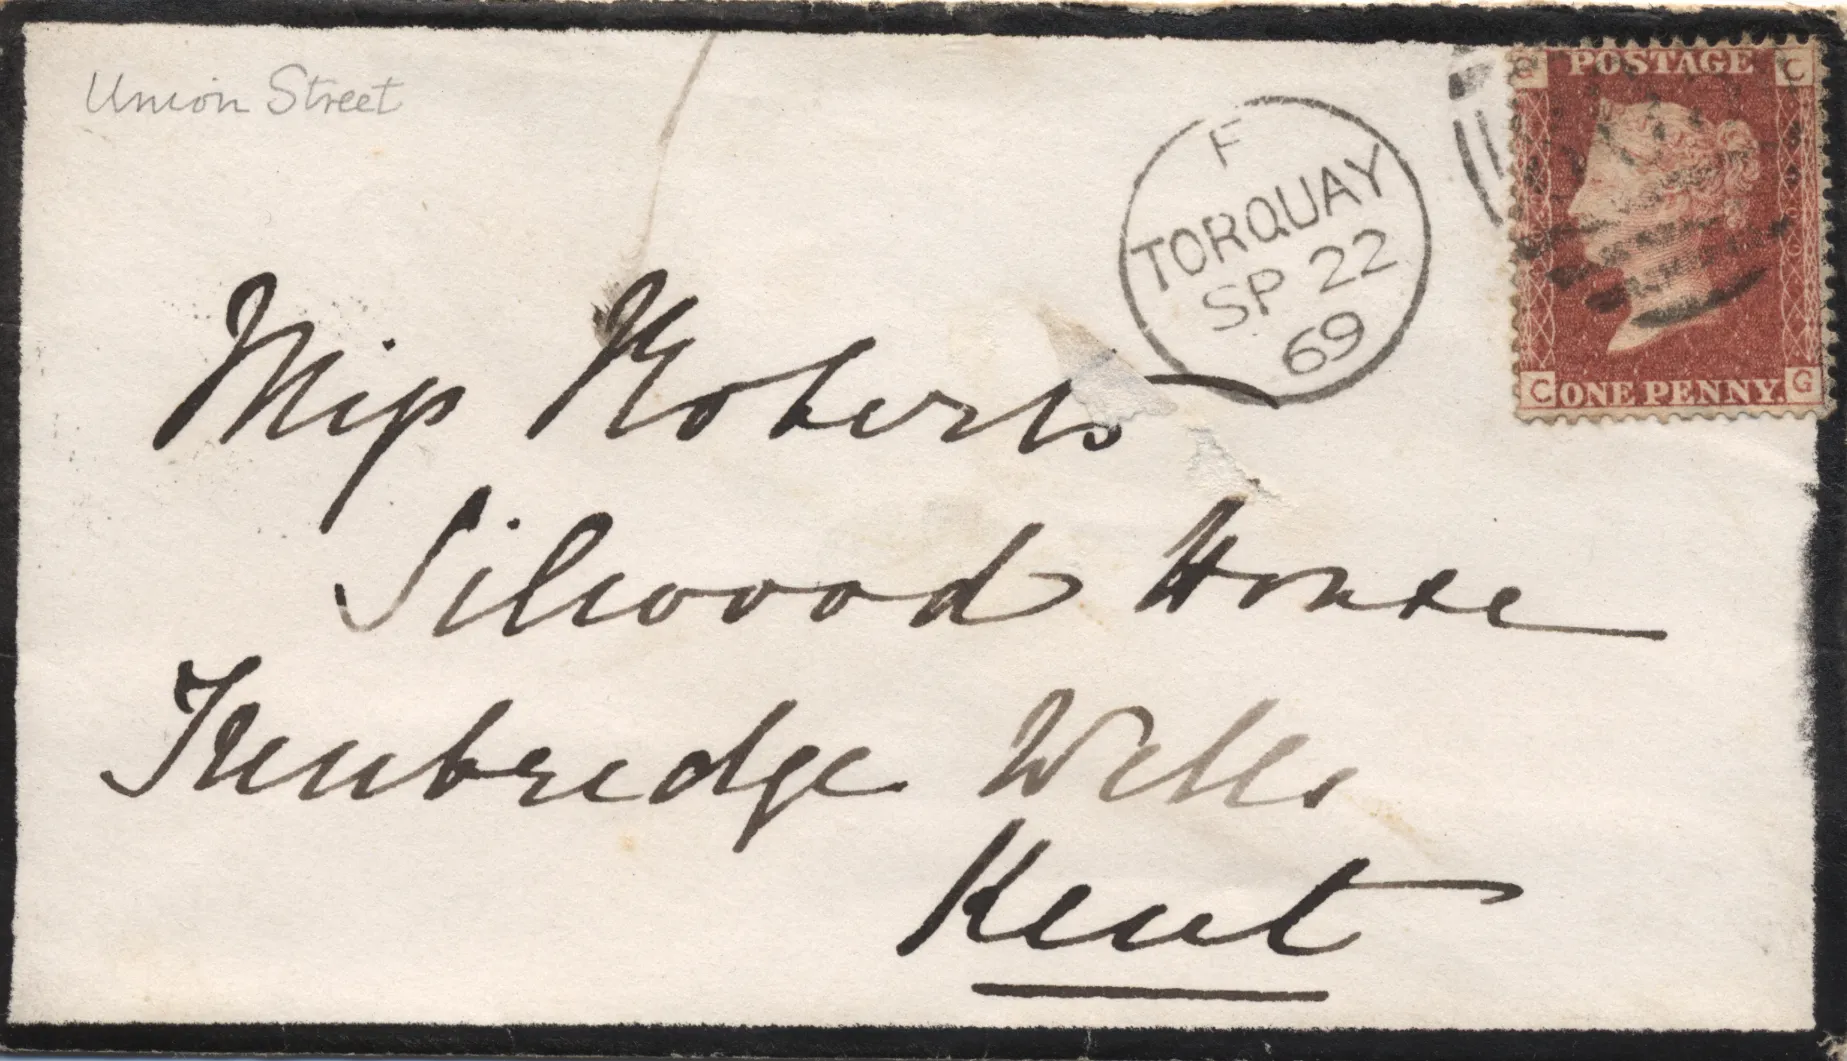 Union Street
F
TORQUAY
SP 22
69
POSTAGE C
C ONE PENNY. G
Miss Roberts
Silwood House
Tunbridge Wells
Kent